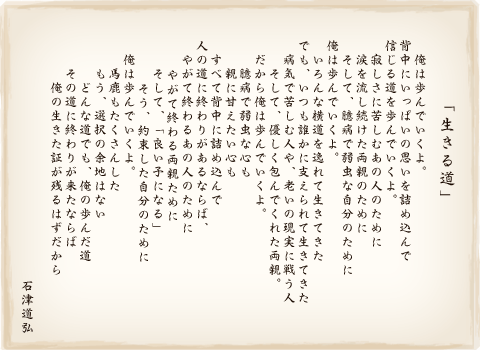 「生きる道」
俺は歩んでいくよ。
背中にいっぱいの思いを詰め込んで
信じる道を歩んでいくよ。
寂しさに苦しむあの人のために
涙を流し続けた両親のために
そして、臆病で弱虫な自分のために
俺は歩んでいくよ。
いろんな横道を逸れて生きてきた
でも、いつも誰かに支えられて生きてきた
病気で苦しむ人や、老いの現実に戦う人
そして、優しく包んでくれた両親。
だから俺は歩んでいくよ。
臆病で弱虫な心も
親に甘えたい心も
すべて背中に詰め込んで
人の道に終わりがあるならば、
やがて終わるあの人のために
やがて終わる両親ために
そして、「良い子になる」
そう、約束した自分のために
俺は歩んでいくよ。
馬鹿もたくさんした
もう、選択の余地はない
どんな道でも、俺の歩んだ道
その道に終わりが来たならば
俺の生きた証が残るはずだから
石津道弘